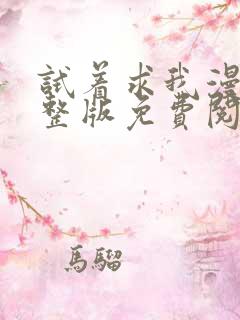 試着求我漫
整版免費閱
馬騮